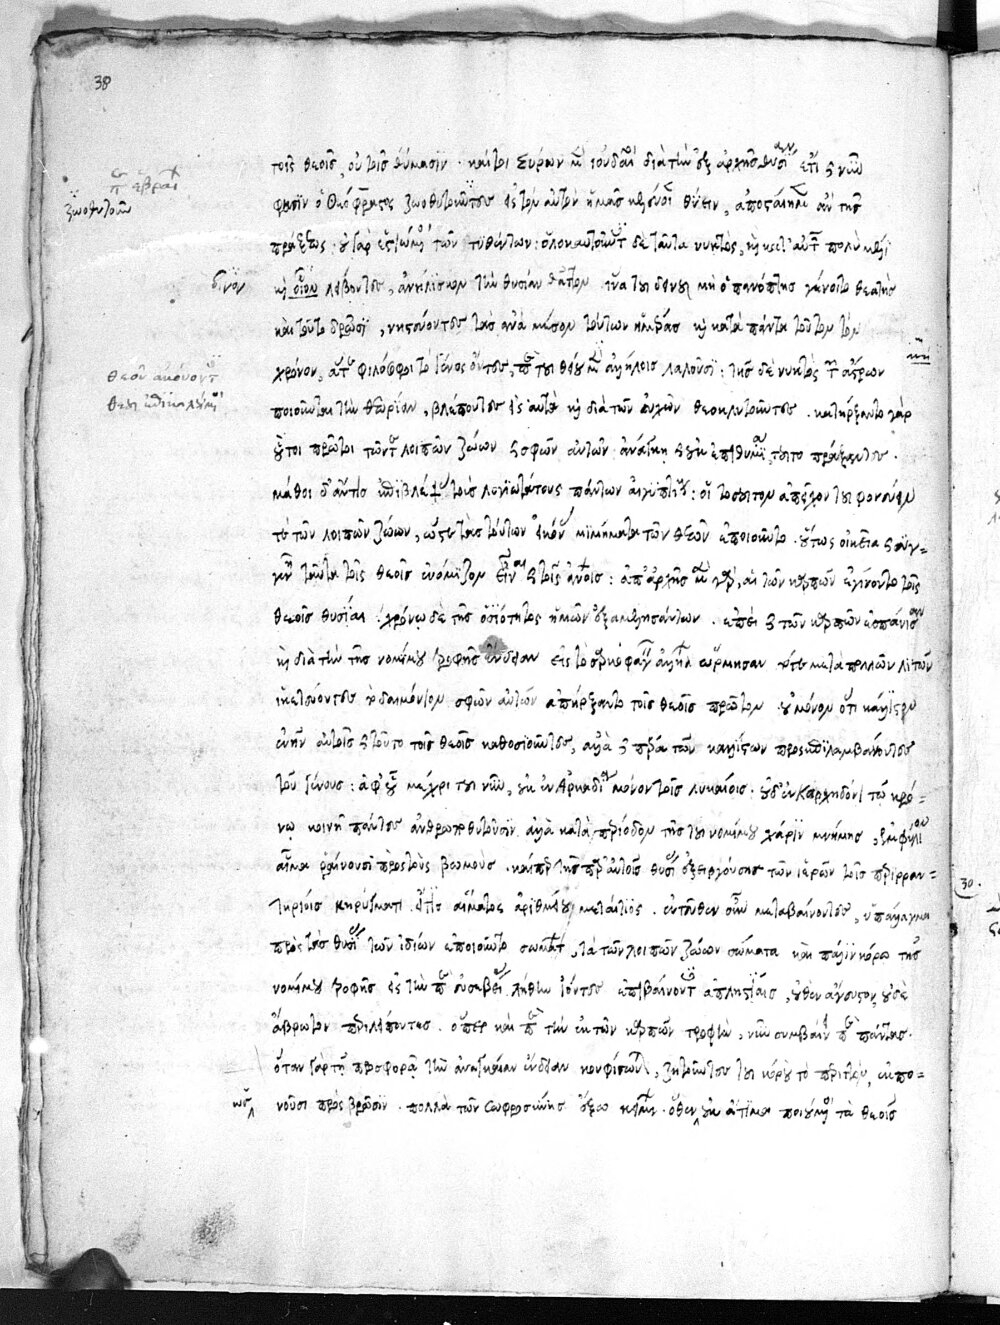 38
τοῖς θεοῖς, οὐ τοῖς θύμασιν. καίτοι Σύρων μὲν ἰουδαῖοι διὰ τὴν ἐξ ἀρχῆς θυσίαν ἔτι καὶ νῦν
φησὶν ὁ Θεόφραστος ζωοθυτούντων εἰς τὸν αὐτὸν ἡμᾶς κελεύοι θύειν, ἀποσταίημεν ἂν τῆς
ζωοθυτοῦν
πράξεως· οὐ γὰρ ἑστιώμενοι τῶν τυθέντων· ὁλοκαυτοῦντες δὲ ταῦτα νυκτὸς, καὶ κατ' αὐτῶν πολὺ μέλι
καὶ οἶνον λείβοντες, ἀνήλισκον τὴν θυσίαν θᾶττον ἵνα τοῦ δεινοῦ μὴ ὁ πανόπτης γένοιτο θεατὴς
καὶ τοῦτο δρῶσι, νηστεύοντες τὰς ἀνὰ μέσον τούτων ἡμέρας καὶ κατὰ πάντα τοῦτον τὸν
χρόνον, ἅτε φιλόσοφοι τὸ γένος ὄντες, περὶ τοῦ θείου μὲν ἀλλήλοις λαλοῦσι· τῆς δὲ νυκτὸς τῶν ἄστρων
ποιοῦνται τὴν θεωρίαν, βλέποντες εἰς αὐτὰ καὶ διὰ τῶν εὐχῶν θεοκλυτοῦντες. κατήρξαντο γὰρ
οὗτοι πρῶτοι τῶν τε λοιπῶν ζώων καὶ σφῶν αὐτῶν ἀνάγκῃ καὶ οὐκ ἐπιθυμίᾳ τοῦτο πράξαντες.
μάθοι δ' ἄν τις ἐπιβλέψας τοὺς λογιωτάτους πάντων αἰγυπτίους· οἳ τοσοῦτον ἀπεῖχον τοῦ φονεύειν
τι τῶν λοιπῶν ζώων, ὥστε τὰς τούτων εἰκόνας μιμήματα τῶν θεῶν ἐποιοῦντο. οὕτως οἰκεῖα καὶ συγ-
γενῆ ταῦτα τοῖς θεοῖς ἐνόμιζον εἶναι καὶ τοῖς ἀνθρώποις· ἀπ' ἀρχῆς μὲν γὰρ, αἱ τῶν καρπῶν ἐγίνοντο τοῖς
θεοῖς θυσίαι· χρόνῳ δὲ τῆς ὁσιότητος ἡμῶν ἐξαμελησάντων. ἐπεὶ καὶ τῶν καρπῶν ἐσπάνισαν
καὶ διὰ τὴν τῆς νομίμου τροφῆς ἔνδειαν εἰς τὸ σαρκοφαγεῖν ἀλλήλων ὥρμησαν τότε μετὰ πολλῶν λιτῶν
ἱκετεύοντες τὸ δαιμόνιον σφῶν αὐτῶν ἀπήρξαντο τοῖς θεοῖς πρῶτον οὐ μόνον ὅτι κάλλιστον
ἐνῆν αὐτοῖς καὶ τοῦτο τοῖς θεοῖς καθοσιοῦντες, ἀλλὰ καὶ πέρα τῶν καλλίστων προσεπιλαμβάνοντες
τοῦ γένους· ἀφ' οὗ μέχρι τοῦ νῦν, οὐκ ἐν Ἀρκαδίᾳ μόνον τοῖς λυκαίοις· οὐδ' ἐν Καρχηδόνι τῷ κρό-
νῳ κοινῇ πάντες ἀνθρωποθυτοῦσιν ἀλλὰ κατὰ περίοδον τῆς τοῦ νομίμου χάριν μνήμης, ἐμφύλιον
αἷμα ῥαίνουσι πρὸς τοὺς βωμούς. καίπερ τῆς παρ' αὐτοῖς θυσίας ἐξειργούσης τῶν ἱερῶν τοῖς περιρραν-
τηρίοις κηρύγματι εἴ τις αἵματος ἀνθρωπείου μεταίτιος. ἐντεῦθεν οὖν μεταβαίνοντες, ὑπάλλαγμα
πρὸς τὰς θυσίας τῶν ἰδίων ἐποιοῦντο σωμάτων, τὰ τῶν λοιπῶν ζώων σώματα καὶ πάλιν κόρῳ τῆς
νομίμου τροφῆς εἰς τὴν περὶ εὐσεβείας λήθην ἰόντες ἐπιβαίνοντες ἀπληστίας, οὐθὲν ἄγευστον οὐδὲ
ἄβρωτον περιλείποντες. ὅπερ καὶ περὶ τὴν ἐκ τῶν καρπῶν τροφὴν, νῦν συμβαίνει περὶ πάντας.
ὅταν γὰρ τῇ προσφορᾷ τὴν ἀναγκαίαν ἔνδειαν κουφίσωσιν, ζητοῦντες τοῦ κόρου τὸ περιττὸν, ἐκπο-
νοῦσι πρὸς βρῶσιν. πολλὰ τῶν σωφροσύνης ἔξω κείμενα. ὅθεν οὐκ ἄτιμα ποιούμενοι τὰ θεοῖς
ὡς